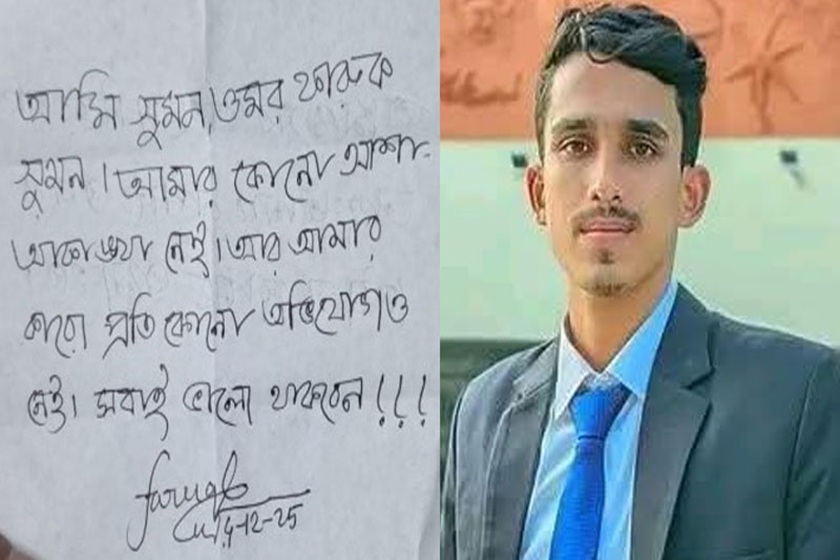 আমি সুমন, ওমর ফারুক
সুমন। আমার কোনো আশা-
আকাঙ্খা নেই। আর আমার
কারো প্রতি কোনো অভিযোগও
নেই। সবাই ভালো থাকবেন!!!
faruqe
12-25